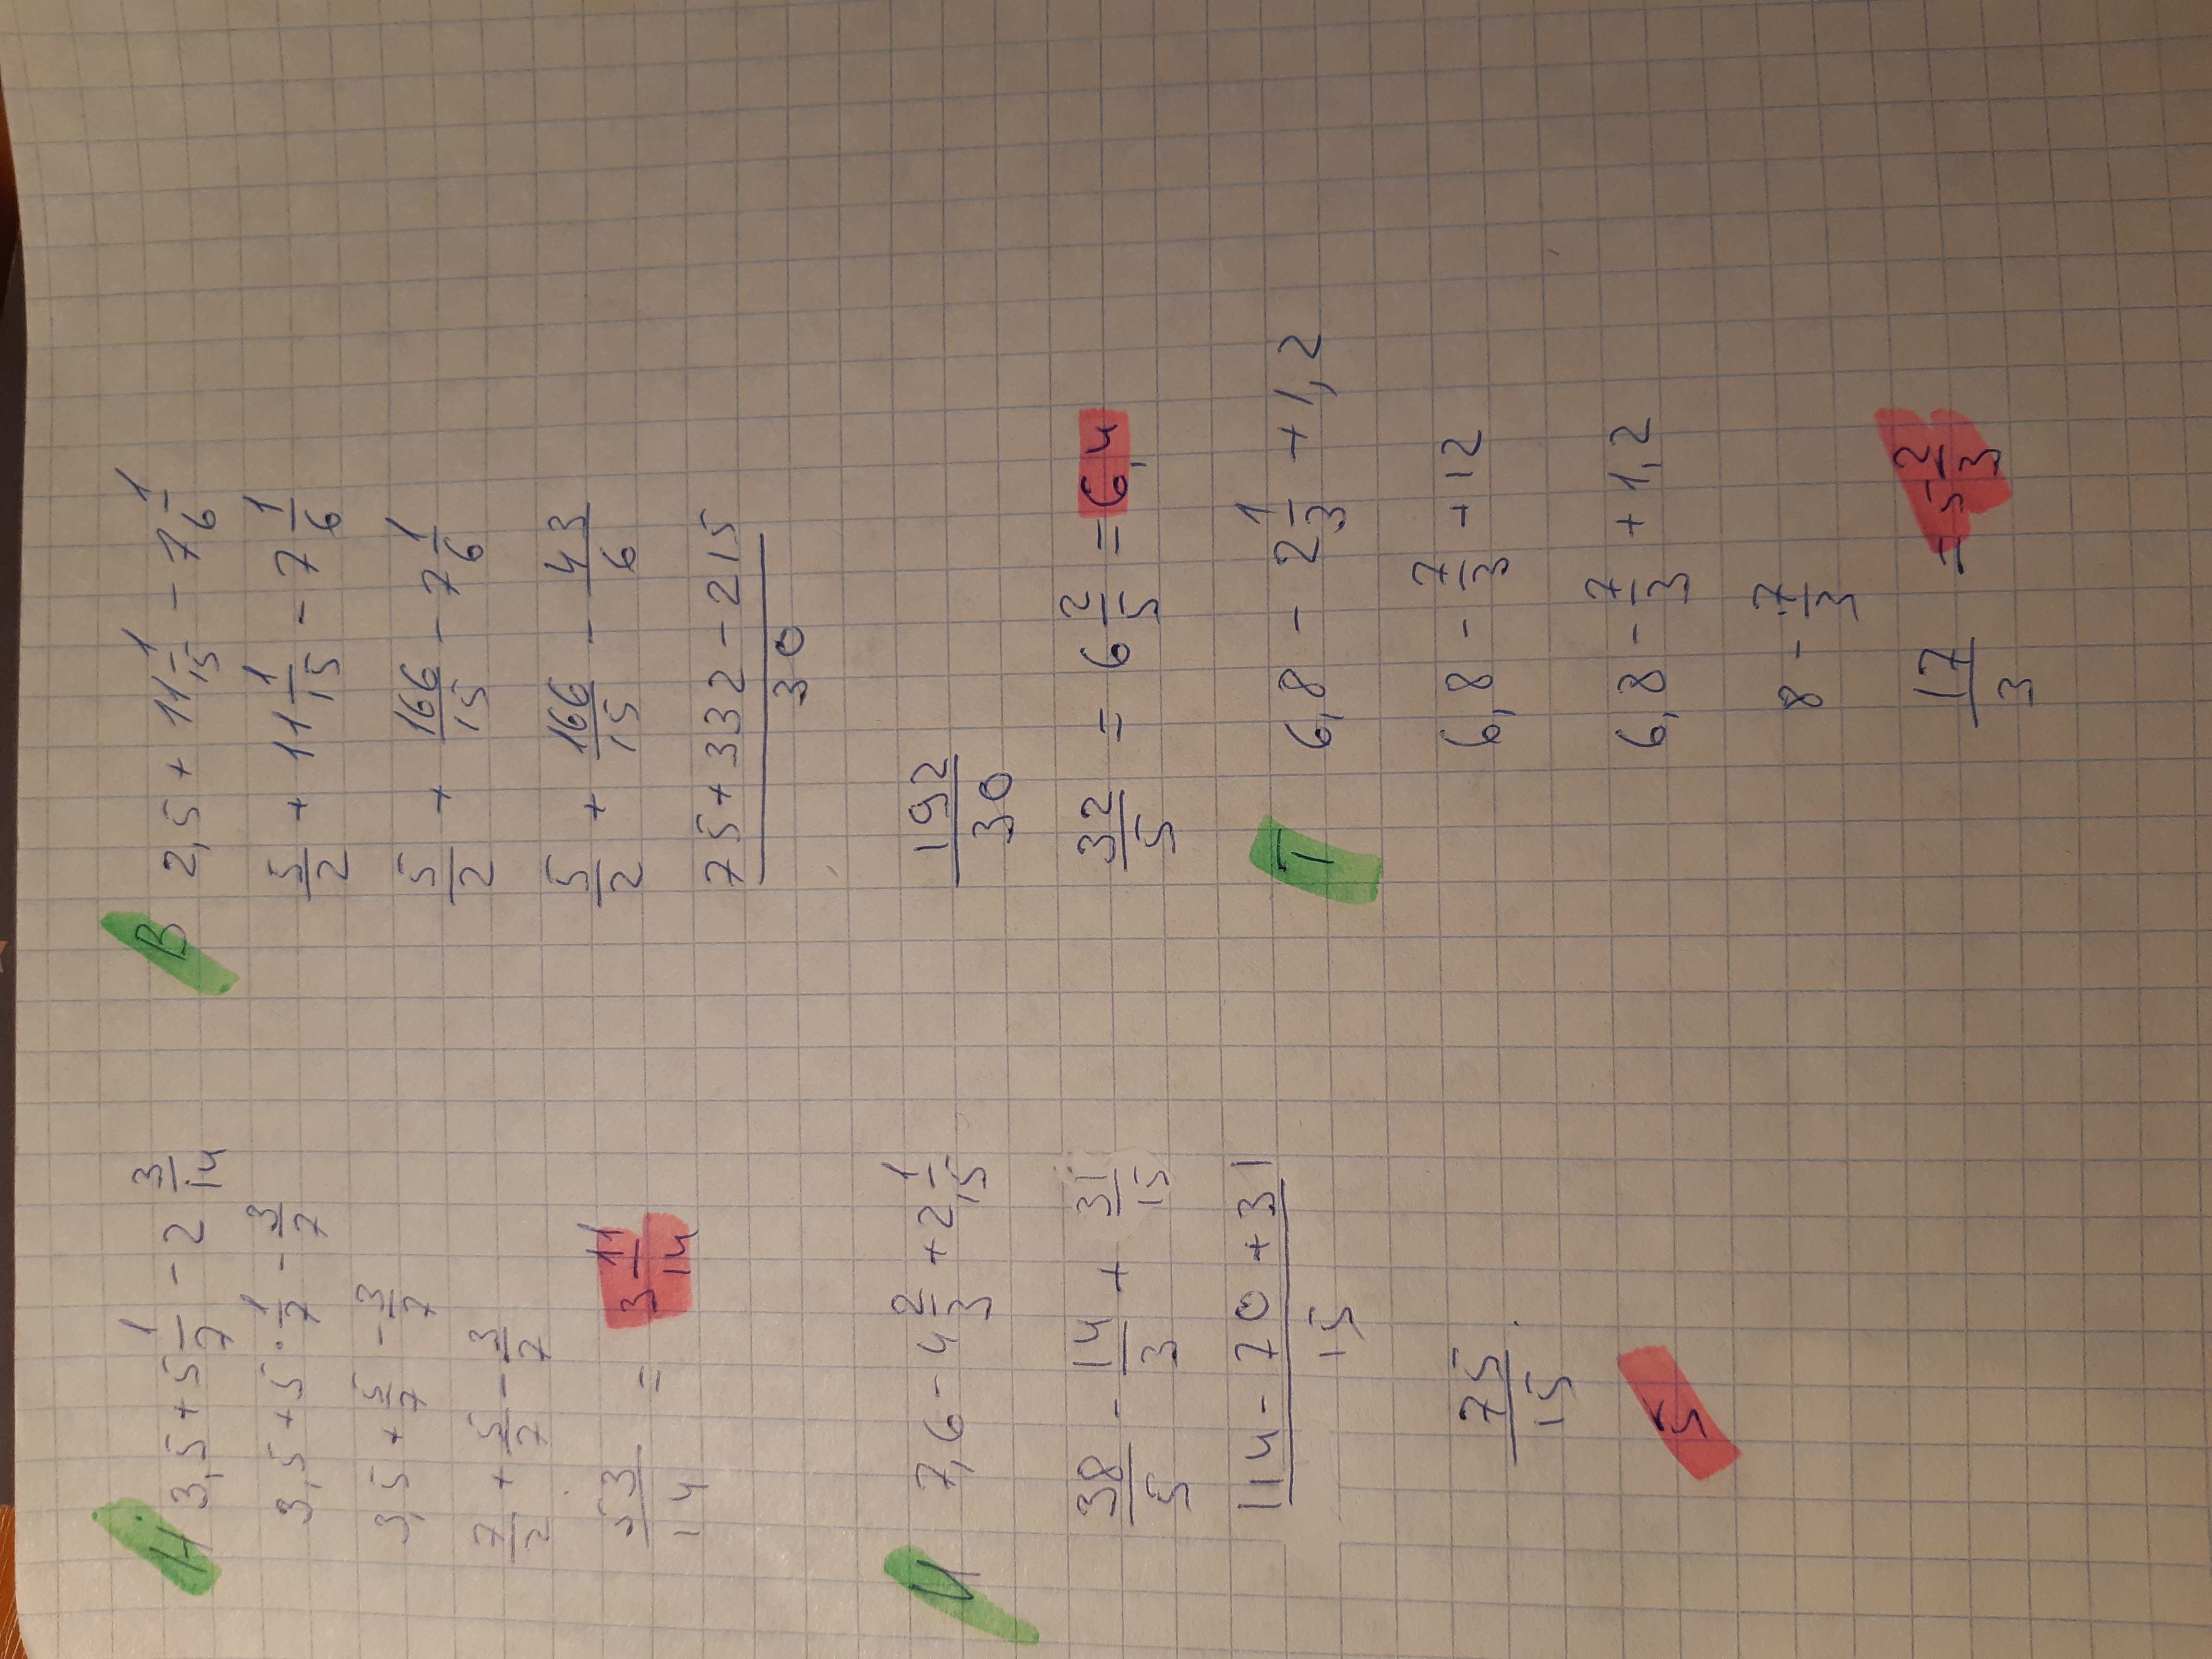 Н 3,5 + 5 1/7 - 2 3/14
3,5 + 5 · 1/7 - 3/7
3,5 + 5/7 - 3/7
7/2 + 5/7 - 3/7
53/14 = 3 11/14
И 7,6 - 4 2/3 + 2 1/15
38/5 - 14/3 + 31/15
114 - 70 + 31/15
75/15
5
В 2,5 + 11 1/15 - 7 1/6
5/2 + 11 1/15 - 7 1/6
5/2 + 166/15 - 7 1/6
5/2 + 166/15 - 43/6
75 + 332 - 215/30
192/30
32/5 = 6 2/5 = 6,4
Т 6,8 - 2 1/3 + 1,2
6,8 - 7/3 + 12
6,8 - 7/3 + 1,2
8 - 7/3
17/3 = 5 2/3